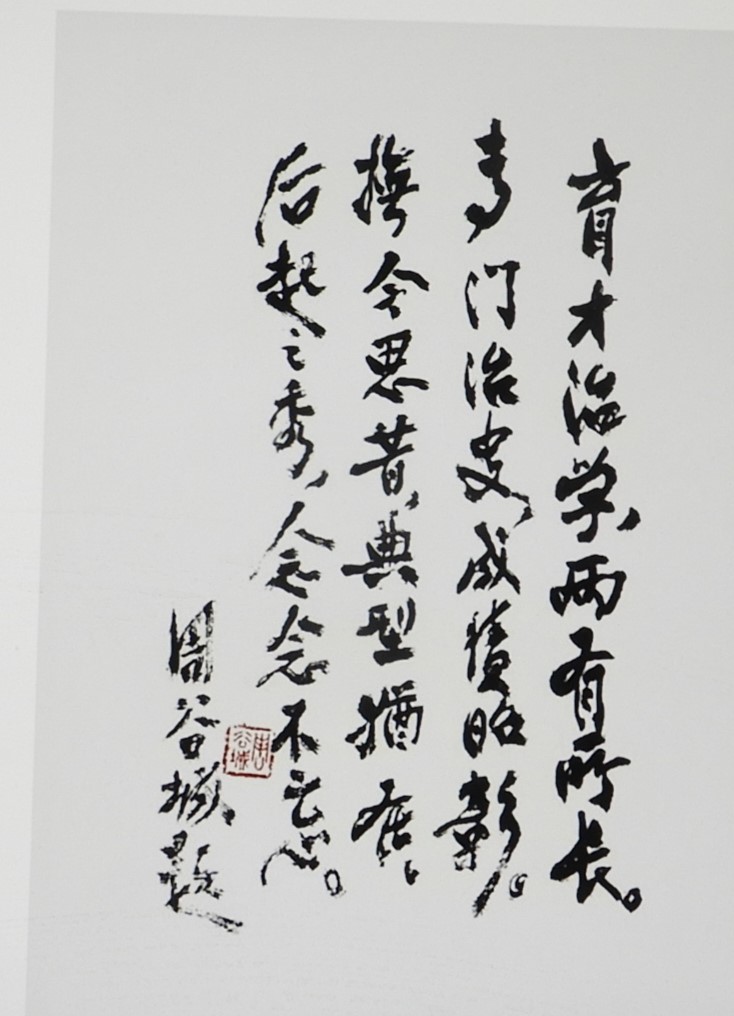 育才治学，两有所长。
专门治史，成绩昭彰。
抚今思昔，典型犹存，
后起之秀，念念不忘。
周谷城题
周谷城